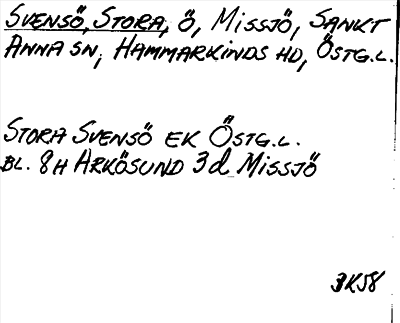 SVENSÖ, STORA, Ö, MISSJÖ, SANKT
ANNA SN, HAMMARKINDS HD, ÖSTG.L.
STORA SVENSÖ EK ÖSTG.L.
BL. 8H ARKÖSUND 3d MISSJÖ
3K58